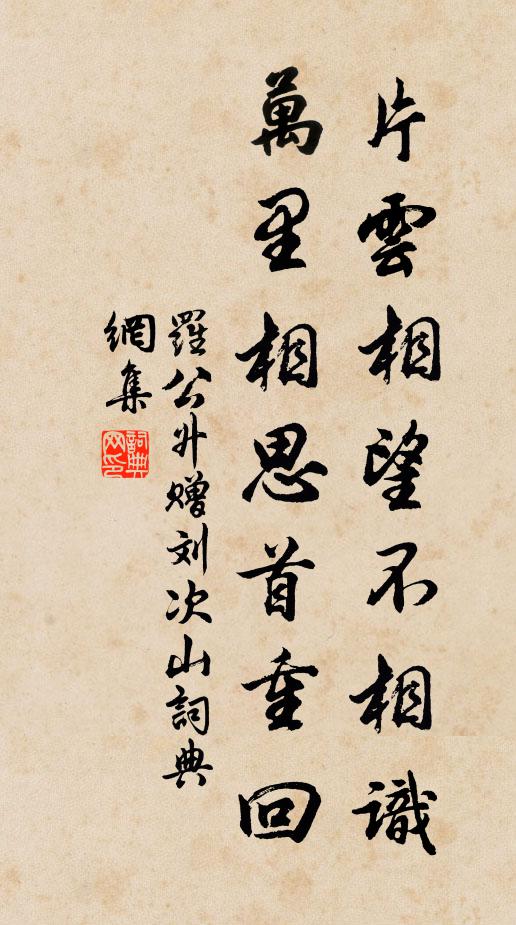 片雲相望不相識
萬里相思首重回
羅公升贈刘次山詞典
網集
詞典
网印